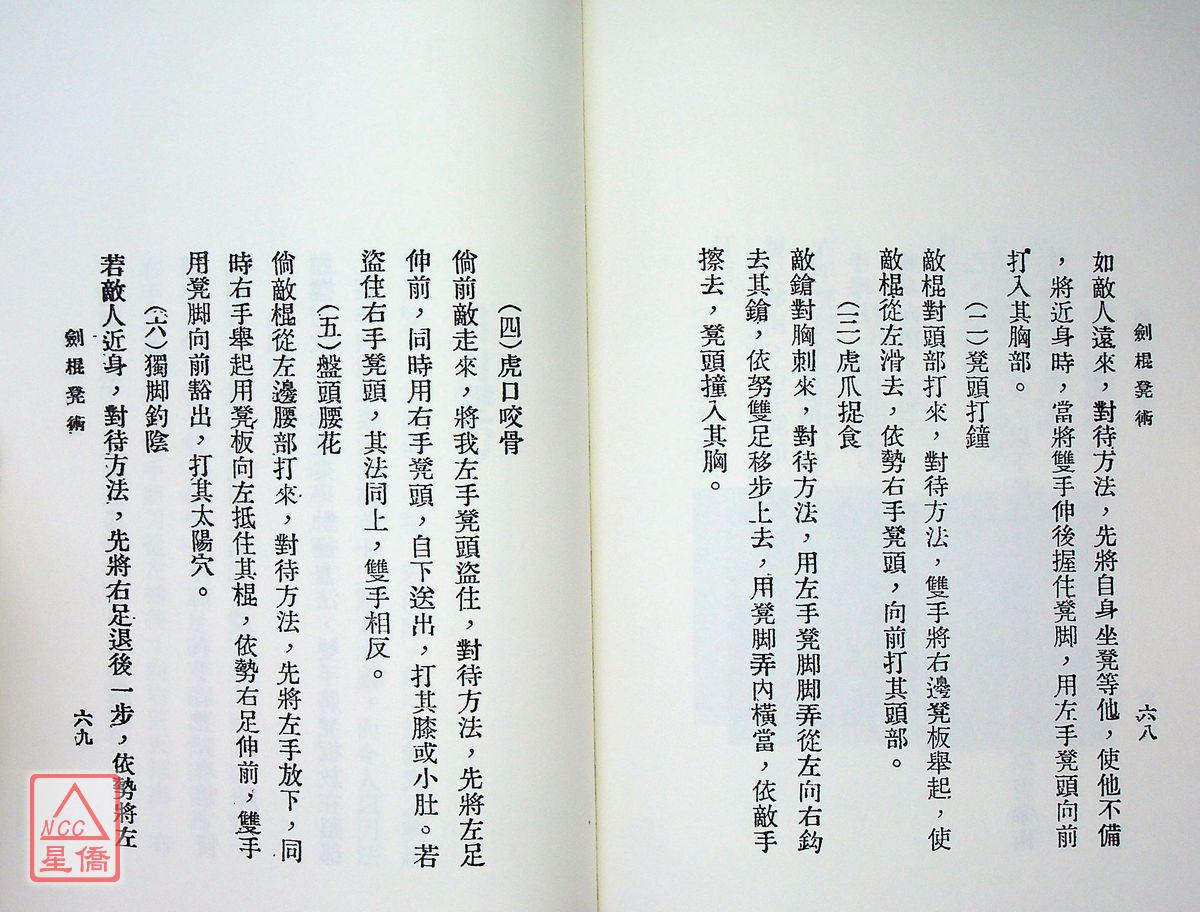 劍棍凳術
六八
如敵人遠來，對待方法，先將自身坐凳等他，使他不備
，將近身時，當將雙手伸後握住凳脚，用左手凳頭向前
打入其胸部。
(二)凳頭打鐘
敵棍對頭部打來，對待方法，雙手將右邊凳板舉起，使
敵棍從左滑去，依勢右手凳頭，向前打其頭部。
(三)虎爪捉食
敵鎗對胸刺來，對待方法，用左手凳脚脚弄從左向右鈎
去其鎗，依努雙足移步上去，用凳脚弄內橫當，依敵手
擦去，凳頭撞入其胸。
(四)虎口咬骨
倘前敵走來，將我左手凳頭盜住，對待方法，先將左足
伸前，同時用右手凳頭，自下送出，打其膝或小肚。若
盜住右手凳頭，其法同上，雙手相反。
(五)盤頭腰花
倘敵棍從左邊腰部打來，對待方法，先將左手放下，同
時右手舉起用凳板向左抵住其棍，依勢右足伸前，雙手
用凳脚向前豁出，打其太陽穴。
(六)獨脚釣陰
若敵人近身，對待方法，先將右足退後一步，依勢將左
劍棍凳術
六九
NCC
星僑